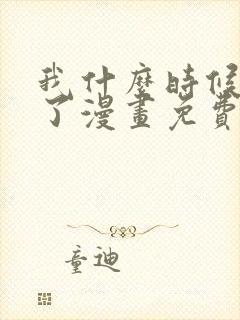 我什麼時候
了漫畫免費
童迪